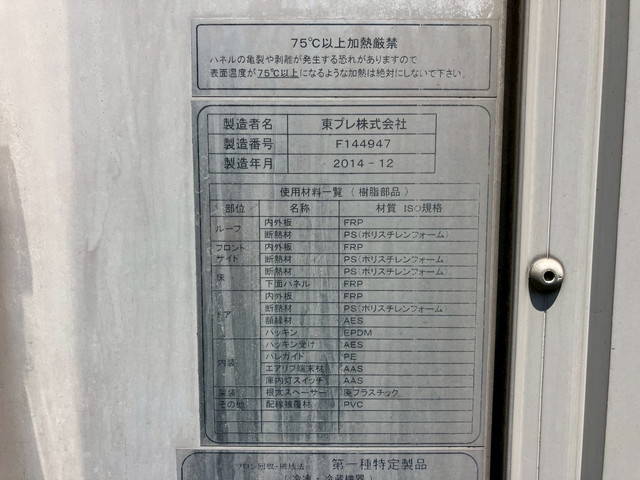 75℃以上加熱厳禁
パネルの亀裂や剥離が発生する恐れがありますので
表面温度が75℃以上になるような加熱は絶対にしないで下さい。
製造者名 東プレ株式会社
製造番号 F144947
製造年月 2014-12
使用材料一覧（樹脂部品）
部位 名称 材質 ISO規格
ルーフ 内外板 FRP
断熱材 PS(ポリスチレンフォーム)
フロント 内外板 FRP
サイド 断熱材 PS(ポリスチレンフォーム)
床 断熱材 PS(ポリスチレンフォーム)
下面パネル FRP
ドア 内外板 FRP
断熱材 PS(ポリスチレンフォーム)
額縁材 AES
パッキン EPDM
内装 パッキン受け AES
バレガイド PE
エアリブ端末材 AAS
庫内灯スイッチ AAS
根太スペーサー 廃プラスチック
その他 配線被覆材 PVC
フロン回収・破壊法 第一種特定製品
(冷凍・冷蔵機器)